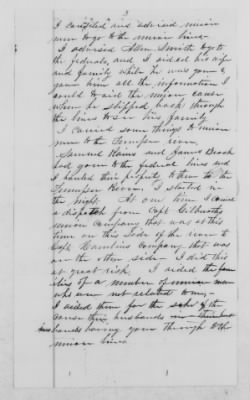 3
I and advised union
men to go to the union lines
I advised Allen Smith to go to
the federals, and I aided his wife
and family while he was gone &
gave him all the information I
could to aid the union cause
when he slipped back through
the lines to see his family
I carried some things to union
men to the Tennessee river
Samuel and James
had gone to the federal lines and
I hauled their property to them to the
Tennessee River. I started in
the night. At one time I carried
a dispatch from Capt
union company that was at this
time on this side of the river to
Capt Company that was
on the other side. I did this
at great risk. I aided the fam
ilies of a number of union men
who are not related to me.
I aided them for the sake of the
cause their husbands
bands having gone through to the
union lines